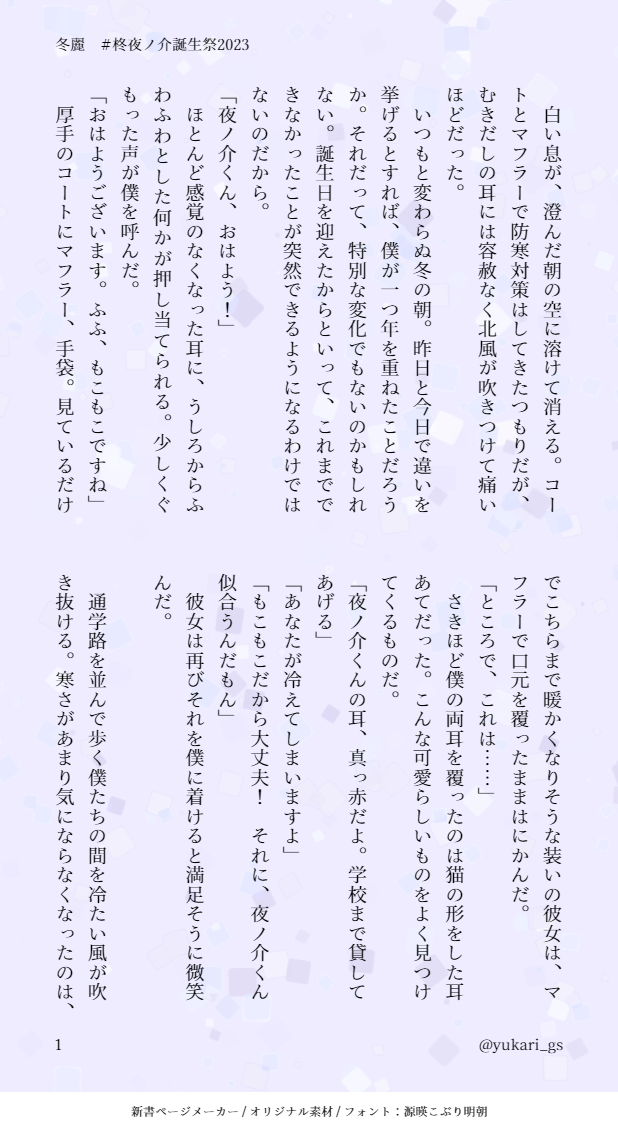 冬麗　#柊夜ノ介誕生祭2023
　白い息が、澄んだ朝の空に溶けて消える。コー
トとマフラーで防寒対策はしてきたつもりだが、
むきだしの耳には容赦なく北風が吹きつけて痛い
ほどだった。
　いつもと変わらぬ冬の朝。昨日と今日で違いを
挙げるとすれば、僕が一つ年を重ねたことだろう
か。それだって、特別な変化でもないのかもしれ
ない。誕生日を迎えたからといって、これまでで
きなかったことが突然できるようになるわけでは
ないのだから。
「夜ノ介くん、おはよう！」
　ほとんど感覚のなくなった耳に、うしろからふ
わふわとした何かが押し当てられる。少しくぐ
もった声が僕を呼んだ。
「おはようございます。ふふ、もこもこですね」
　厚手のコートにマフラー、手袋。見ているだけ
でこちらまで暖かくなりそうな装いの彼女は、マ
フラーで口元を覆ったままはにかんだ。
「ところで、これは……」
　さきほど僕の両耳を覆ったのは猫の形をした耳
あてだった。こんな可愛らしいものをよく見つけ
てくるものだ。
「夜ノ介くんの耳、真っ赤だよ。学校まで貸して
あげる」
「あなたが冷えてしまいますよ」
「もこもこだから大丈夫！　それに、夜ノ介くん
似合うんだもん」
　彼女は再びそれを僕に着けると満足そうに微笑
んだ。
　通学路を並んで歩く僕たちの間を冷たい風が吹
き抜ける。寒さがあまり気にならなくなったのは、
1
@yukari_gs
新書ページメーカー / オリジナル素材 / フォント：源暎こぶり明朝